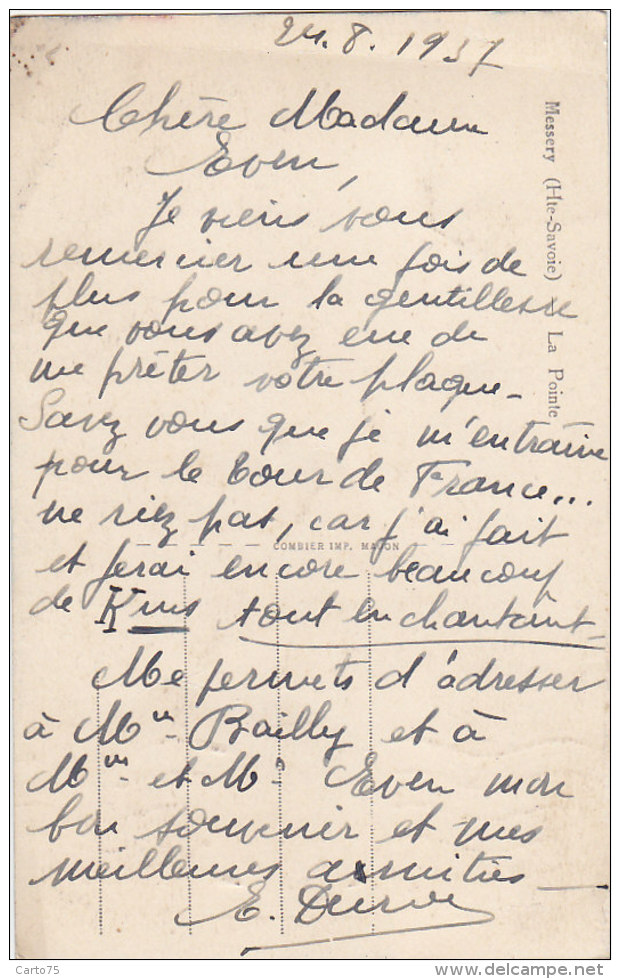 24.8.1937
Chère Madame
Even,
Je viens vous
remercier une fois de
plus pour la gentillesse
que vous avez eue de
me prêter votre plaque -
Savez vous que je m'entraîne
pour le tour de France...
ne riez pas, car j'ai fait
et ferai encore beaucoup
de Kms tout en chantant -
Me permets d'adresser
à Mme Bailly et à
Mme et Mr Even mon
bon souvenir et mes
meilleures amitiés
E.
Messery (Hte-Savoie) - La Pointe
COMBIER IMP. MACON
Carto75